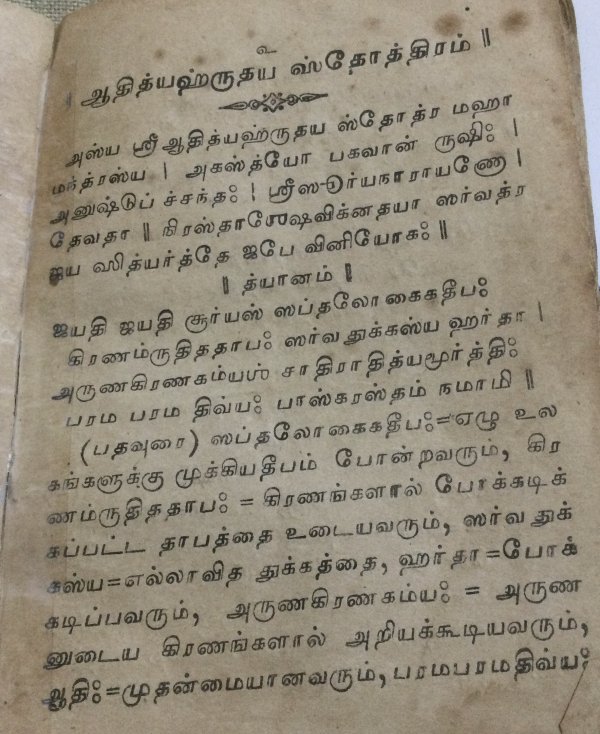 உ
ஆதித்யஹ்ருதய ஸ்தோத்திரம் ||
அஸ்ய ஸ்ரீ ஆதித்யஹ்ருதய ஸ்தோத்ர மஹா
மந்த்ரஸ்ய | அகஸ்த்யோ பகவான் ருஷிஃ |
அனுஷ்டுப் ச்சந்தஃ | ஸ்ரீஸூர்யநாராயணோ |
தேவதா || நிரஸ்தாஶேஷவிக்னதயா ஸர்வத்ர
ஜய ஸித்யர்த்தே ஜபே வினியோகஃ ||
|| த்யானம் ||
ஜயதி ஜயதி சூர்யஸ் ஸப்தலோகைகதீபஃ
கிரணம்ருதிததாபஃ ஸர்வதுக்கஸ்ய ஹர்தா |
அருணகிரணகம்யஶ் சாதிராதித்யமூர்த்திஃ
பரம பரம திவ்யஃ பாஸ்கரஸ்தம் நமாமி ||
(பதவுரை) ஸப்தலோகைகதீபஃ=ஏழு உல
கங்களுக்கு முக்கியதீபம் போன்றவரும், கிர
ணம்ருதிததாபஃ = கிரணங்களால் போக்கடிக்
கப்பட்ட தாபத்தை உடையவரும், ஸர்வ துக்
கஸ்ய=எல்லாவித துக்கத்தை, ஹர்தா=போக்
கடிப்பவரும், அருணகிரணகம்யஃ = அருண
னுடைய கிரணங்களால் அறியக்கூடியவரும்,
ஆதிஃ=முதன்மையானவரும், பரமபரமதிவ்யஃ